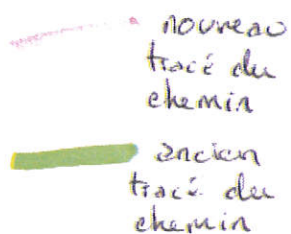 nouveau
tracé du
chemin
ancien
tracé du
chemin